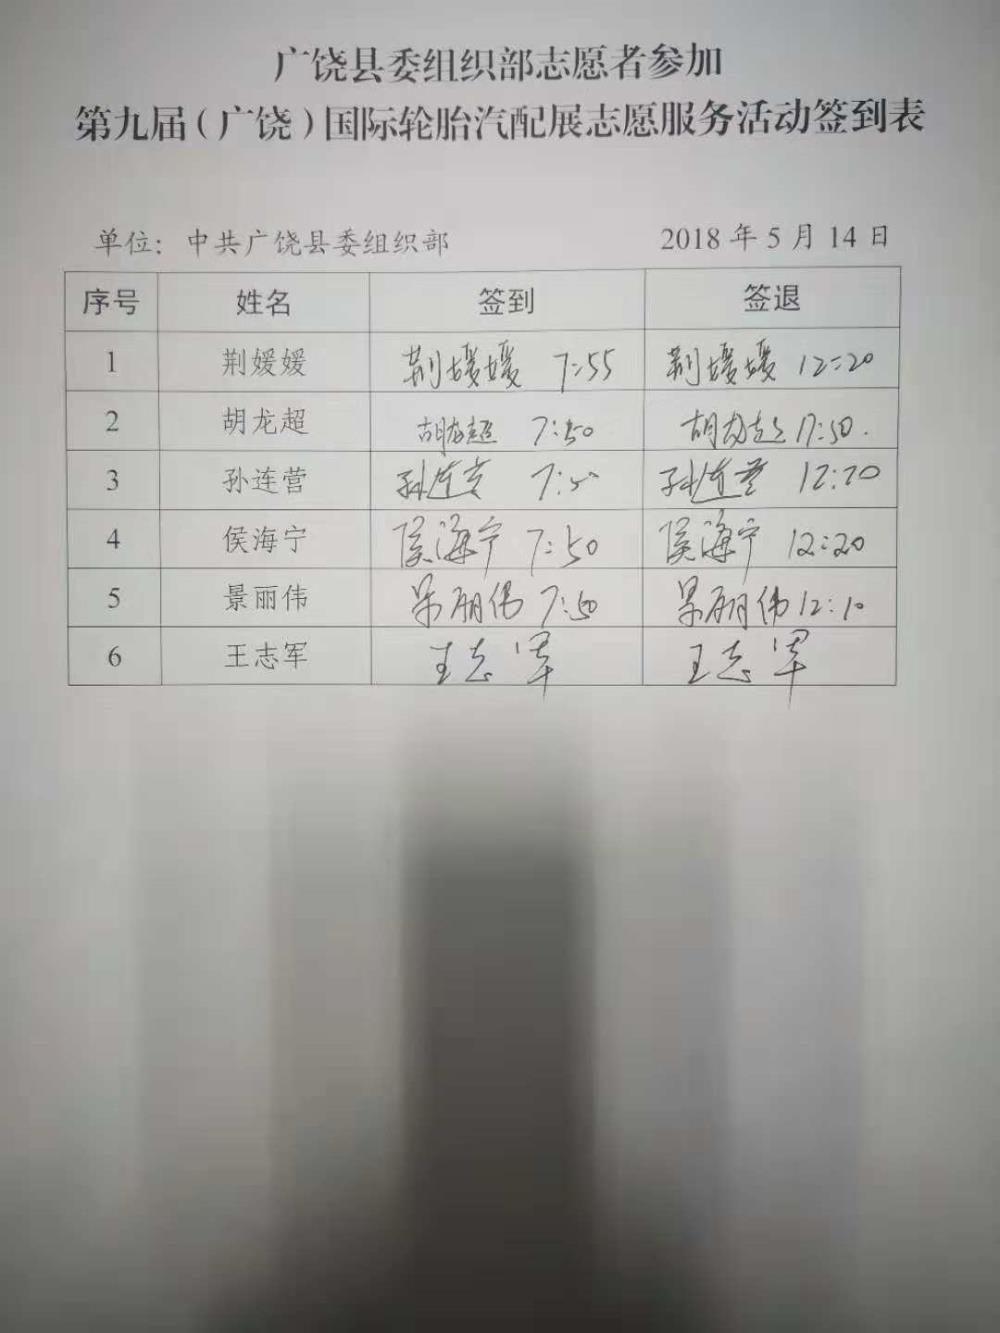 广饶县委组织部志愿者参加
第九届（广饶）国际轮胎汽配展志愿服务活动签到表
单位：中共广饶县委组织部 2018 年 5 月 14 日
序号 姓名 签到 签退
1 荆媛媛 荆媛媛 7:55 荆媛媛 12:20
2 胡龙超 胡龙超 7:50 胡龙超 17:50.
3 孙连营 孙连营 孙连营 12:20
4 侯海宁 侯海宁 7:50 侯海宁 12:20
5 景丽伟 景丽伟 7:50 景丽伟 12:10
6 王志军 王志军 王志军